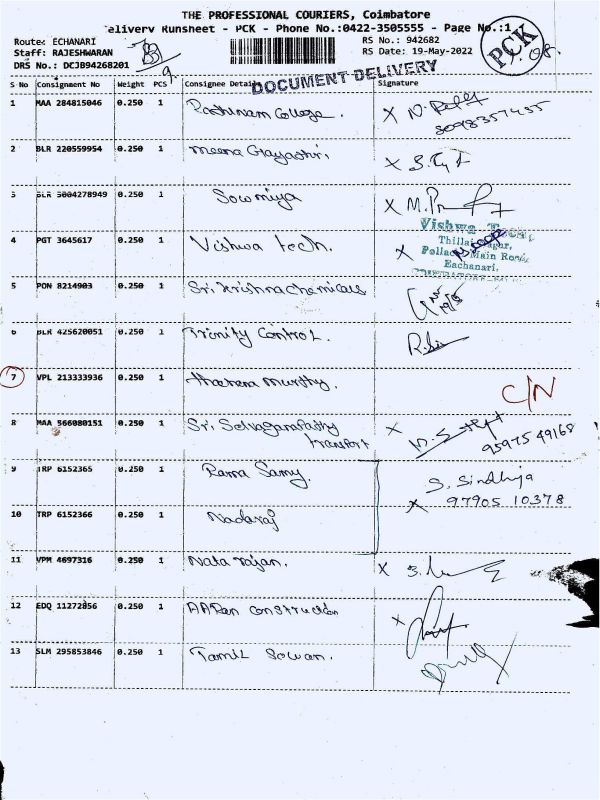 THE PROFESSIONAL COURIERS, Coimbatore
elivery Runsheet - PCK - Phone No.:0422-3505555 - Page No.:1
Route: ECHANARI
RS No.: 942682
Staff: RAJESHWARAN
RS Date: 19-May-2022
DRS No.: DCJB94268201
PCK
08.
DOCUMENT DELIVERY
S No Consignment No Weight PCS Consignee Details Signature
1 MAA 284815046 0.250 1 Rathinam College.
8098357455
2 BLR 220559954 0.250 1 Meena Gayathri.
3 BLR 5004278949 0.250 1 Sowmiya
4 PGT 3645617 0.250 1 Vishwa tech.
Vishwa Tech,
Main Road,
Eachanari,
5 PON 8214903 0.250 1 Sri Krishna Chemicals
6 BLR 425620051 0.250 1 Trinity Control.
7 VPL 213333936 0.250 1 murthy.
C/N
8 MAA 566080151 0.250 1 Sri Selvaganapathy
transport
95975 49168
9 TRP 6152365 0.250 1 Rama Samy.
S. Sindhuja
97905 10378
10 TRP 6152366 0.250 1 Nadaraj
11 VPM 4697316 0.250 1 Nata rajan.
12 EDQ 11272856 0.250 1 Construction
13 SLM 295853846 0.250 1 Tamil Sowan.